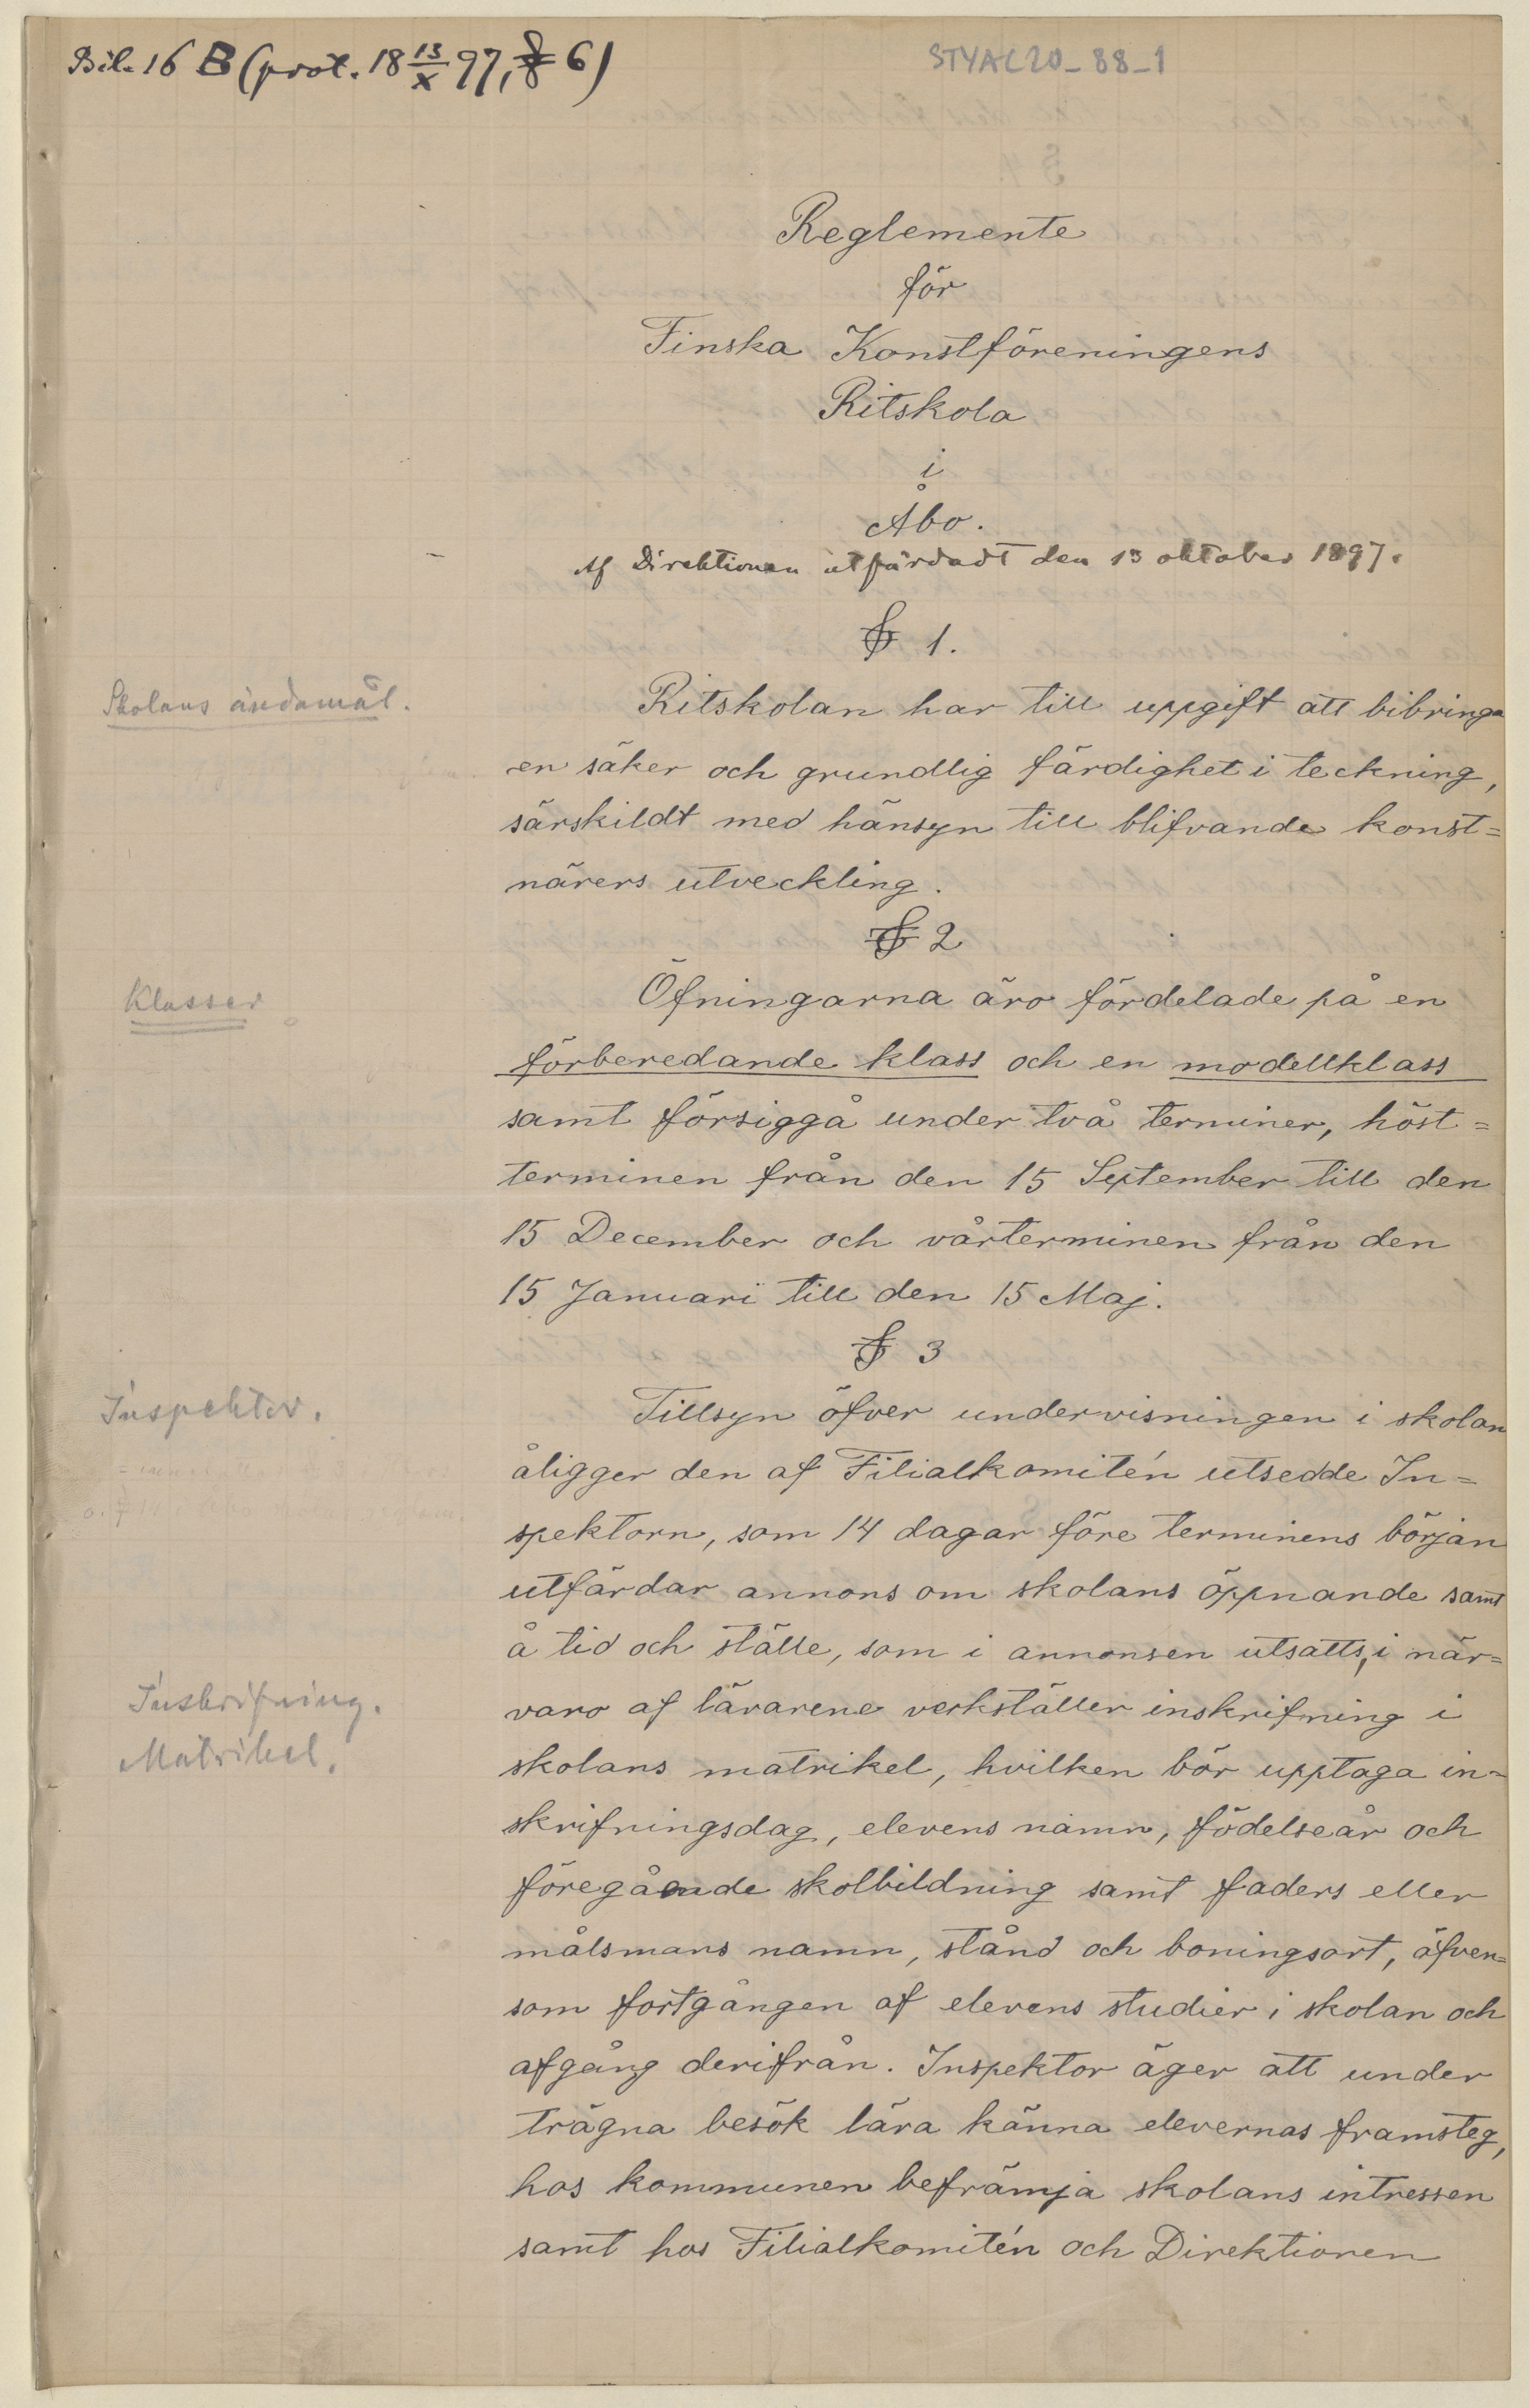 Bil. 16 B (prot. 18 13/X 97, § 6)
STYAC20_88_1
Reglemente
för
Finska Konstföreningens
Ritskola
i
Åbo.
Af Direktionen utfärdadt den 13 oktober 1897.
§ 1.
Skolans ändamål.
Ritskolan har till uppgift att bibringa
en säker och grundlig färdighet i teckning,
särskildt med hänsyn till blifvande konst=
närers utveckling.
§ 2
Klasser
Öfningarna äro fördelade på en
förberedande klass och en modellklass
samt försiggå under två terminer, höst=
terminen från den 15 September till den
15 December och vårterminen från den
15 Januari till den 15 Maj.
§ 3
Inspektor.
Tillsyn öfver undervisningen i skolan
åligger den af Filialkomitén utsedde In=
spektorn, som 14 dagar före terminens början
utfärdar annons om skolans öppnande samt
å tid och ställe, som i annonsen utsatts, i när=
Inskrifning.
varo af lärarene verkställer inskrifning i
Matrikel.
skolans matrikel, hvilken bör upptaga in=
skrifningsdag, elevens namn, födelseår och
föregående skolbildning samt faders eller
målsmans namn, stånd och boningsort, äfven=
som fortgången af elevens studier i skolan och
afgång derifrån. Inspektor äger att under
trägna besök lära känna elevernas framsteg,
hos kommunen befrämja skolans intressen
samt hos Filialkomitén och Direktionen